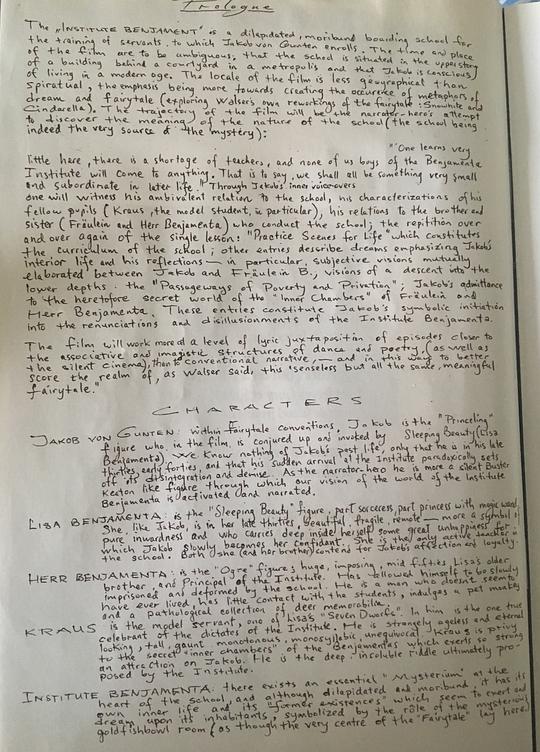 Prologue
The "INSTITUTE BENJAMENTA" is a dilapidated, moribund boarding school for
the training of servants, to which Jakob von Gunten enrolls. The time and place
of the film are to be ambiguous, that the school is situated in the upper story
of a building behind a courtyard in a metropolis and that Jakob is conscious
of living in a modern age. The locale of the film is less geographical than
spiritual, the emphasis being more towards creating the occurrence of metaphors of
dream and fairytale (exploring Walser's own reworkings of the fairytale: Snowhite and
Cinderella). The trajectory of the film will be the narrator-hero's attempt
to discover the meaning of the nature of the school (the school being
indeed the very source of the mystery):
"One learns very
little here, there is a shortage of teachers, and none of us boys of the Benjamenta
Institute will come to anything. That is to say, we shall all be something very small
and subordinate in later life." Through Jakob's inner voice-overs
one will witness his ambivalent relation to the school, his characterizations of his
fellow pupils (Kraus, the model student, in particular), his relations to the brother and
sister (Fräulein and Herr Benjamenta) who conduct the school; the repitition over
and over again of the single lesson: "Practice Scenes for Life" which constitutes
the curriculum of the school; other entries describe dreams emphasizing Jakob's
interior life and his reflections — in particular, subjective visions mutually
elaborated between Jakob and Fräulein B., visions of a descent into the
lower depths: the "Passageways of Poverty and Privation"; Jakob's admittance
to the heretofore secret world of the "Inner Chambers" of Fräulein and
Herr Benjamenta. These entries constitute Jakob's symbolic initiation
into the renunciations and disillusionments of the Institute Benjamenta.
The film will work more at a level of lyric juxtaposition of episodes closer to
the associative and imagistic structures of dance and poetry, (as well as
the silent cinema), than to conventional narrative, — and in this way to better
score the realm of, as Walser said, this "senseless but all the same, meaningful
fairytale."
CHARACTERS
JAKOB VON GUNTEN: within Fairytale conventions, Jakob is the "Princeling"
figure who in the film, is conjured up and invoked by Sleeping Beauty (Lisa
Benjamenta). We know nothing of Jakob's past life, only that he is in his late
thirties, early forties, and that his sudden arrival at the Institute paradoxically sets
off its disintegration and demise. As the narrator-hero he is more a silent Buster
Keaton like figure through which our vision of the world of the Institute
Benjamenta is activated and narrated.
LISA BENJAMENTA: is the "Sleeping Beauty" figure, part sorceress, part princess with magic wand.
She, like Jakob, is in her late thirties, beautiful, fragile, remote — more a symbol of
pure, inwardness and who carries deep inside herself some great unhappiness for
which Jakob slowly becomes her confidant. She is the only active teacher in
the school. Both she (and her brother) contend for Jakob's affection and loyalty.
HERR BENJAMENTA: is the "Ogre" figure; huge, imposing, mid fifties Lisa's older
brother, and Principal of the Institute. Has allowed himself to be slowly
imprisoned and deformed by the school. He is a man who doesn't seem to
have ever lived, has little contact with the students, indulges a pet monkey
and a pathological collection of deer memorabilia.
KRAUS is the model servant, one of Lisa's "Seven Dwarfs". In him is the one true
celebrant of the dictates of the Institute. He is strangely ageless and eternal
looking, tall, gaunt monotonous, monosyllabic, unequivocal. Kraus is privy
to the secret "inner chambers" of the Benjamentas which exerts so strong
an attraction on Jakob. He is the deep insoluble riddle ultimately pro-
posed by the Institute.
INSTITUTE BENJAMENTA: there exists an essential "Mysterium" at the
heart of the school, and although dilapidated and moribund it has its
own inner life and its "former existences" which seem to exert and
dream upon its inhabitants, symbolized by the rôle of the mysterious
goldfishbowl room (as though the very centre of the "Fairytale" lay here)